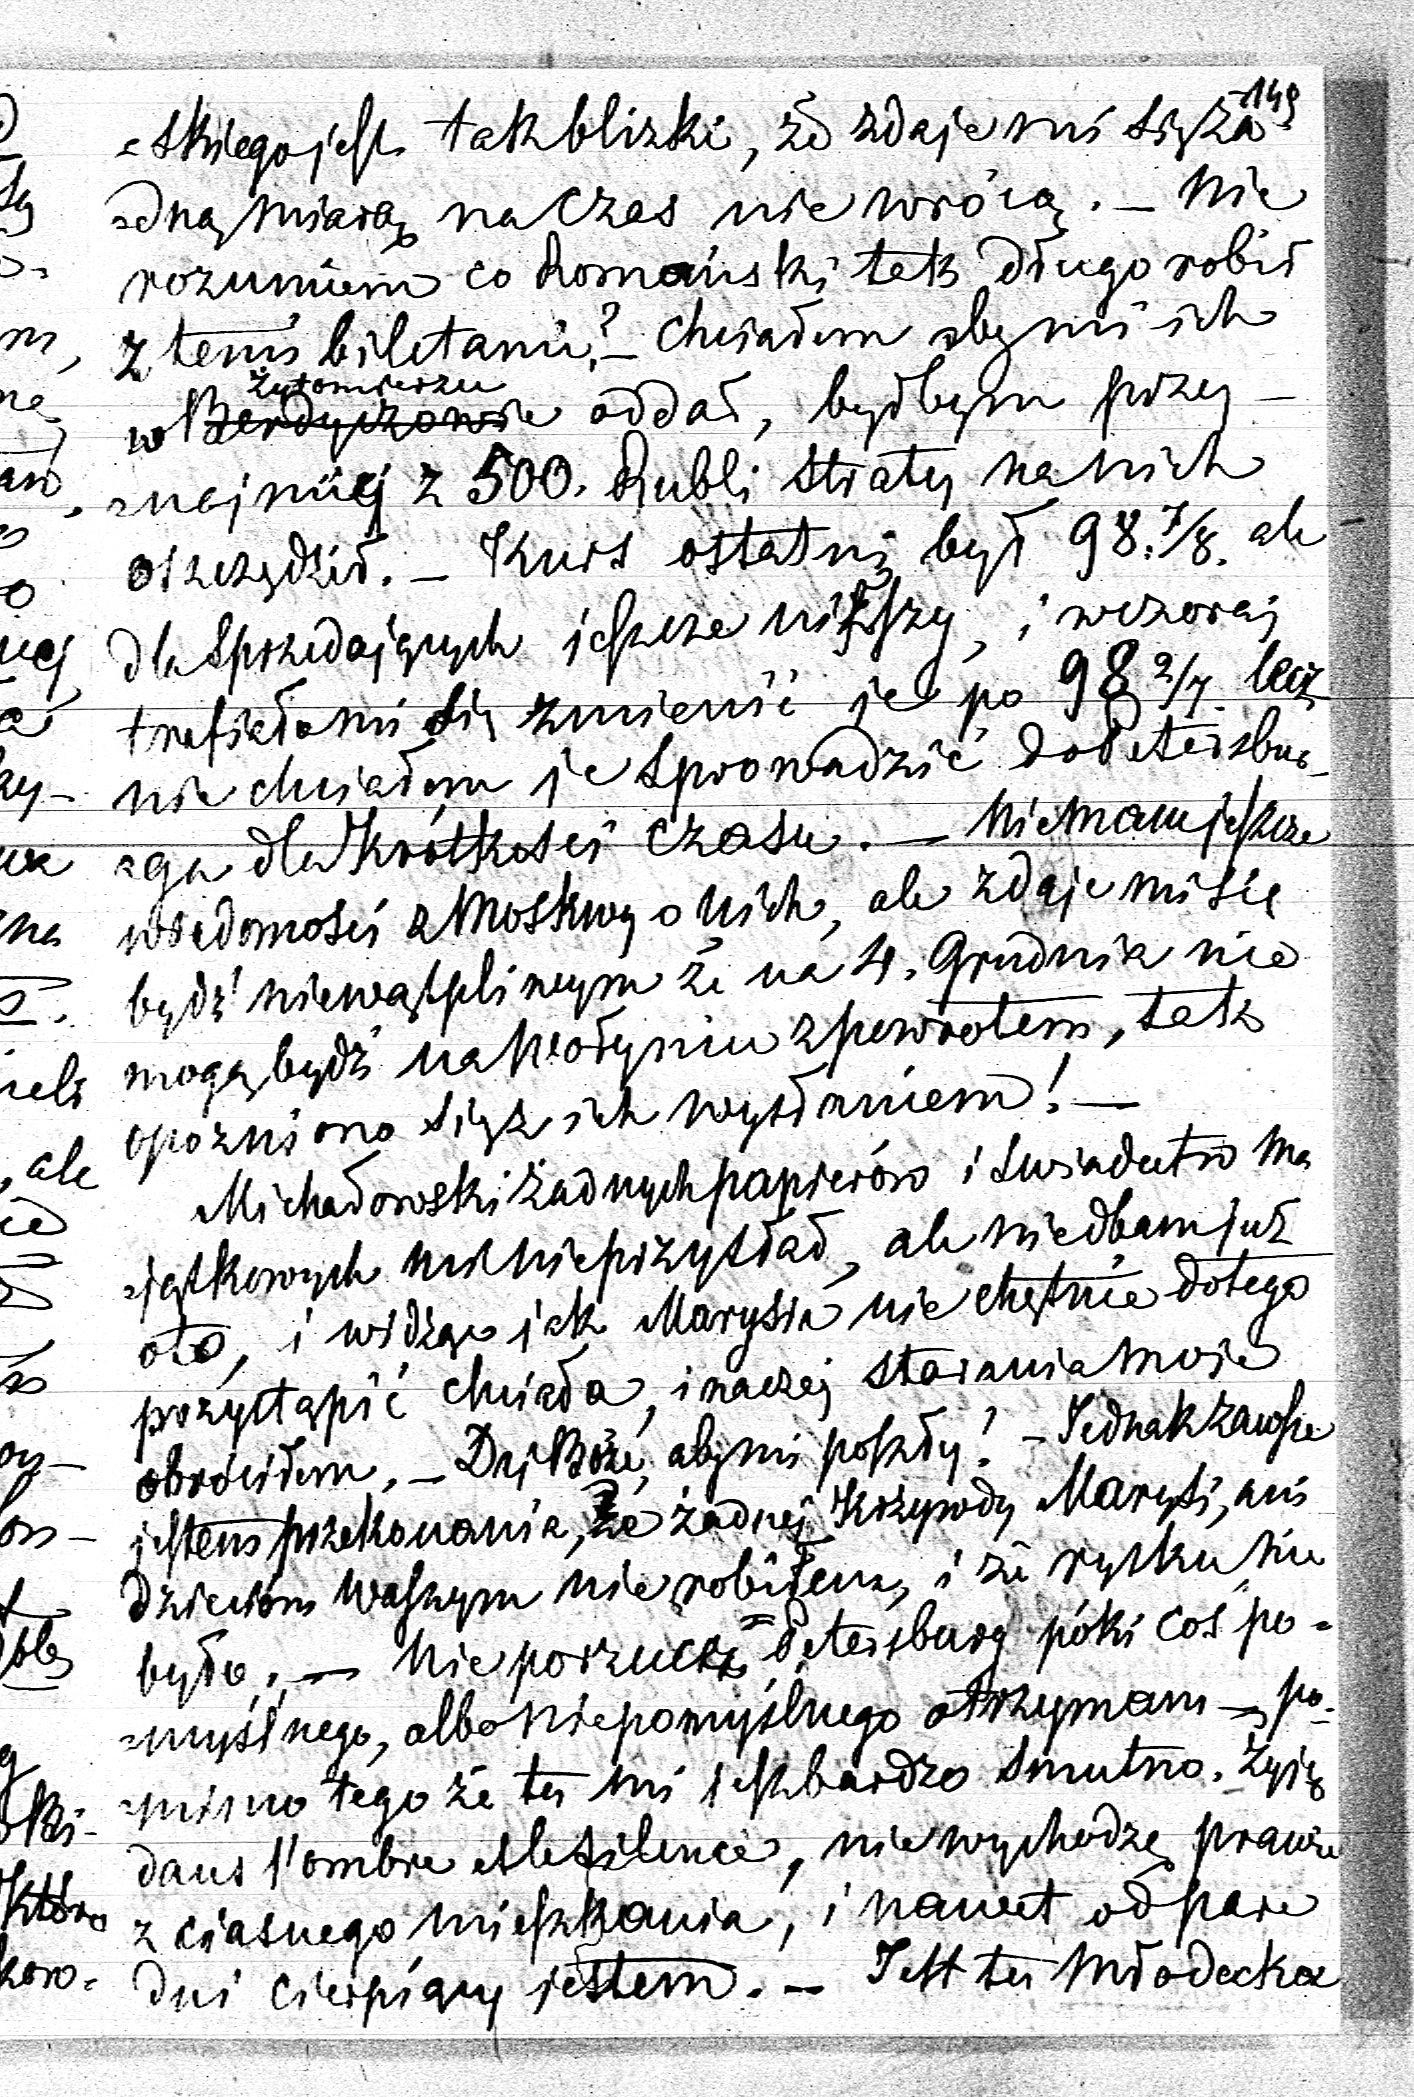 149
=skiego jest tak blizki, że zdaje mi się za
=dną miarą na czas nie wrócą. — Nie
rozumiem co Romański tak długo robił
z temi biletami? — Chciałem aby mi ich
Żytomierzu
w Berdyczowie oddał, byłbym przy-
=najmniej z 500. Rubli straty na nich
oszczędził. — Kurs ostatni był 98. 7/8. ale
dla sprzedających jeszcze niższy, i wczoraj
trafiało mi się zmienić je po 98 2/7. lecz
nie chciałem je sprowadzić do Petersbur-
=ga dla krótkości czasu. — Nie mam jeszcze
wiedomości z Moskwy o nich, ale zdaje mi się
bydź niewątpliwym że na 4. Grudnia nie
mogą bydź na Wołyniu z powrotem, tak
opóźniono się z ich wysłaniem! —
Michałowski żadnych papierów i świadectw ma
=jątkowych mi nie przysłał, ale nie dbam już
o to, i widząc jak Marysia nie chętnie do tego
przystąpić chciała, inaczej starania moie
obróciłem. — Daj Boże, aby mi poszły! — Jednak zawsze
jestem przekonania, że żadnej krzywdy Marysi, ani
dzieciom waszym nie robiłem, i że rysku nie
było. — Nie porzucę Petersburg póki coś po-
=myślnego, albo niepomyślnego otrzymam — po-
=mimo tego że tu mi jest bardzo smutno. Żyię
dans l'ombre et le silence, nie wychodzę prawie
z ciasnego mieszkania, i nawet od pare
dni cierpiący jestem. — Jest tu Młodecka